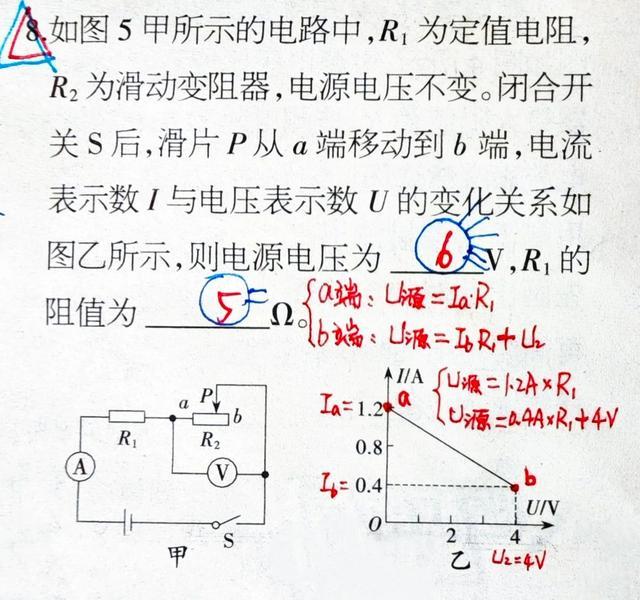 8.如图5甲所示的电路中,R₁为定值电阻,
R₂为滑动变阻器,电源电压不变。闭合开
关S后,滑片P从a端移动到b端,电流
表示数I与电压表示数U的变化关系如
图乙所示,则电源电压为 6 V,R₁的
阻值为 5 Ω。
a端:U源=Ia·R₁
b端:U源=IbR₁+U₂
a P b
R₁ R₂
A V
S
甲
I/A
U源=1.2A×R₁
U源=0.4A×R₁+4V
Ia=1.2 a
0.8
Ib=0.4 b
U/V
O 2 4
乙 U₂=4V